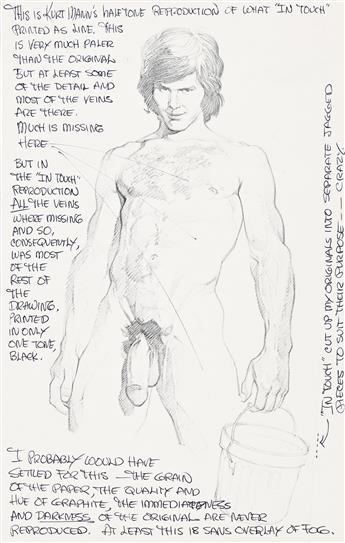 THIS IS KURT MANN'S HALFTONE REPRODUCTION OF WHAT "IN TOUCH"
PRINTED AS LINE. THIS
IS VERY MUCH PALER
THAN THE ORIGINAL
BUT AT LEAST SOME
OF THE DETAIL AND
MOST OF THE VEINS
ARE THERE.
MUCH IS MISSING
HERE
BUT IN
THE "IN TOUCH"
REPRODUCTION
ALL THE VEINS
WHERE MISSING
AND SO,
CONSEQUENTLY,
WAS MOST
OF THE
REST OF
THE
DRAWING,
PRINTED
IN ONLY
ONE TONE,
BLACK.
"IN TOUCH" CUT UP MY ORIGINALS INTO SEPARATE JAGGED
PIECES TO SUIT THEIR PURPOSE -- CRAZY
I PROBABLY WOULD HAVE
SETTLED FOR THIS — THE GRAIN
OF THE PAPER, THE QUALITY AND
HUE OF GRAPHITE, THE IMMEDIATENESS
AND DARKNESS OF THE ORIGINAL ARE NEVER
REPRODUCED. AT LEAST THIS IS SANS OVERLAY OF FOG.